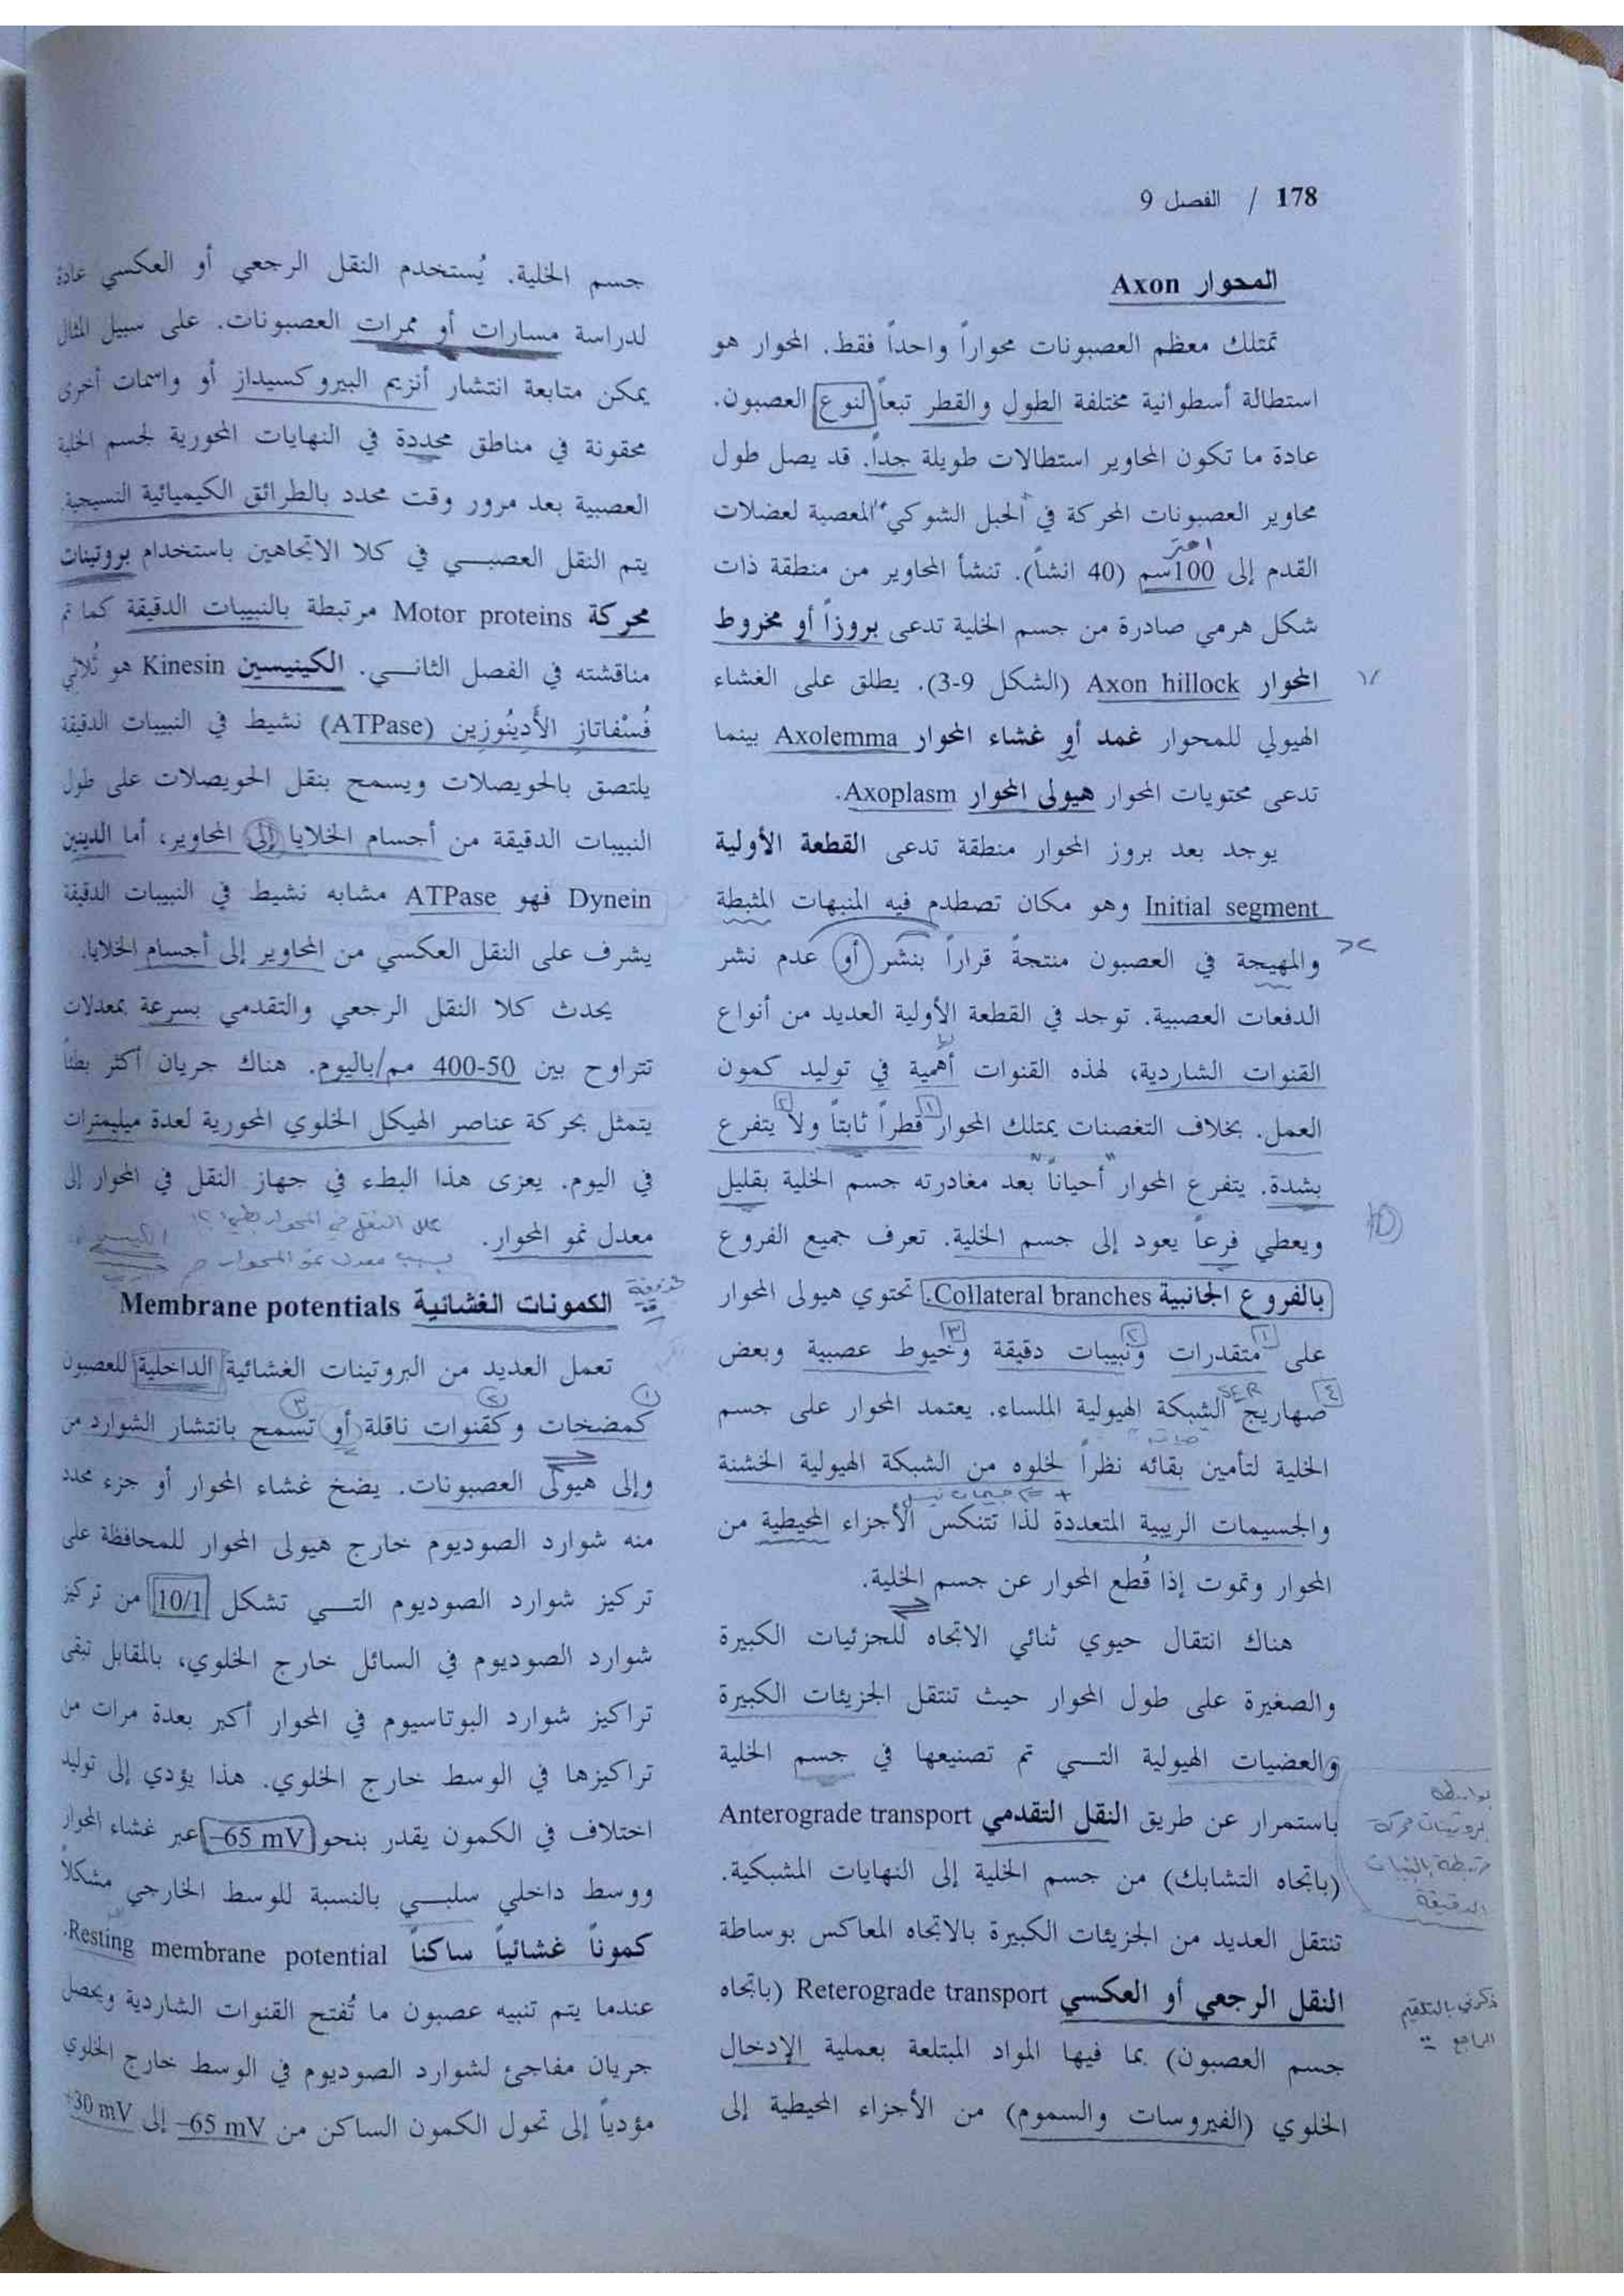 178 / الفصل 9
المحوار Axon
تمتلك معظم العصبونات محواراً واحداً فقط. المحوار هو
استطالة أسطوانية مختلفة الطول والقطر تبعاً لنوع العصبون.
عادة ما تكون المحاوير استطالات طويلة جداً. قد يصل طول
محاوير العصبونات المحركة في الحبل الشوكي المعصبة لعضلات
القدم إلى 100سم (40 انشاً). تنشأ المحاوير من منطقة ذات
شكل هرمي صادرة من جسم الخلية تدعى بروزاً أو مخروط
المحوار Axon hillock (الشكل 9-3). يطلق على الغشاء
الهيولي للمحوار غمد أو غشاء المحوار Axolemma بينما
تدعى محتويات المحوار هيولى المحوار Axoplasm.
يوجد بعد بروز المحوار منطقة تدعى القطعة الأولية
Initial segment وهو مكان تصطدم فيه المنبهات المثبطة
والمهيجة في العصبون منتجةً قراراً بنشر أو عدم نشر
الدفعات العصبية. توجد في القطعة الأولية العديد من أنواع
القنوات الشاردية، لهذه القنوات أهمية في توليد كمون
العمل. بخلاف التغصنات يمتلك المحوار قطراً ثابتاً ولا يتفرع
بشدة. يتفرع المحوار أحياناً بعد مغادرته جسم الخلية بقليل
ويعطي فرعاً يعود إلى جسم الخلية. تعرف جميع الفروع
بالفروع الجانبية Collateral branches. تحتوي هيولى المحوار
على متقدرات ونبيبات دقيقة وخيوط عصبية وبعض
SER
صهاريج الشبكة الهيولية الملساء. يعتمد المحوار على جسم
الخلية لتأمين بقائه نظراً لخلوه من الشبكة الهيولية الخشنة
والجسيمات الريبية المتعددة لذا تتنكس الأجزاء المحيطية من
المحوار وتموت إذا قُطع المحوار عن جسم الخلية.
هناك انتقال حيوي ثنائي الاتجاه للجزئيات الكبيرة
والصغيرة على طول المحوار حيث تنتقل الجزيئات الكبيرة
والعضيات الهيولية التـي تم تصنيعها في جسم الخلية
باستمرار عن طريق النقل التقدمي Anterograde transport
(باتجاه التشابك) من جسم الخلية إلى النهايات المشبكية.
تنتقل العديد من الجزيئات الكبيرة بالاتجاه المعاكس بوساطة
النقل الرجعي أو العكسي Reterograde transport (باتجاه
جسم العصبون) بما فيها المواد المبتلعة بعملية الإدخال
الخلوي (الفيروسات والسموم) من الأجزاء المحيطية إلى
بواسطة
بروتينات محركة
مرتبطة بالنبيبات
الدقيقة
جسم الخلية. يُستخدم النقل الرجعي أو العكسي عادة
لدراسة مسارات أو ممرات العصبونات. على سبيل المثال
يمكن متابعة انتشار أنزيم البيروكسيداز أو واسمات أخرى
محقونة في مناطق محددة في النهايات المحورية لجسم الخلية
العصبية بعد مرور وقت محدد بالطرائق الكيميائية النسيجية
يتم النقل العصبـي في كلا الاتجاهين باستخدام بروتينات
محركة Motor proteins مرتبطة بالنبيبات الدقيقة كما تم
مناقشته في الفصل الثانـي. الكينيسين Kinesin هو ثُلاثي
فُسْفاتاز الأَدِينُوزين (ATPase) نشيط في النبيبات الدقيقة
يلتصق بالحويصلات ويسمح بنقل الحويصلات على طول
النبيبات الدقيقة من أجسام الخلايا إلى المحاوير، أما الدينين
Dynein فهو ATPase مشابه نشيط في النبيبات الدقيقة
يشرف على النقل العكسي من المحاوير إلى أجسام الخلايا.
يحدث كلا النقل الرجعي والتقدمي بسرعة بمعدلات
تتراوح بين 50-400 مم/باليوم. هناك جريان أكثر بطئاً
يتمثل بحركة عناصر الهيكل الخلوي المحورية لعدة ميليمترات
في اليوم. يعزى هذا البطء في جهاز النقل في المحوار إلى
معدل نمو المحوار.
بسبب معدل نمو المحوار
الكمونات الغشائية Membrane potentials
تعمل العديد من البروتينات الغشائية الداخلية للعصبون
كمضخات وكقنوات ناقلة أو تسمح بانتشار الشوارد من
وإلى هيولى العصبونات. يضخ غشاء المحوار أو جزء محدد
منه شوارد الصوديوم خارج هيولى المحوار للمحافظة على
تركيز شوارد الصوديوم التـي تشكل 10/1 من تركيز
شوارد الصوديوم في السائل خارج الخلوي، بالمقابل تبقى
تراكيز شوارد البوتاسيوم في المحوار أكبر بعدة مرات من
تراكيزها في الوسط خارج الخلوي. هذا يؤدي إلى توليد
اختلاف في الكمون يقدر بنحو −65 mV عبر غشاء المحوار
ووسط داخلي سلبـي بالنسبة للوسط الخارجي مشكلاً
كموناً غشائياً ساكناً Resting membrane potential.
عندما يتم تنبيه عصبون ما تُفتح القنوات الشاردية ويحصل
جريان مفاجئ لشوارد الصوديوم في الوسط خارج الخلوي
مؤدياً إلى تحول الكمون الساكن من −65 mV إلى +30 mV